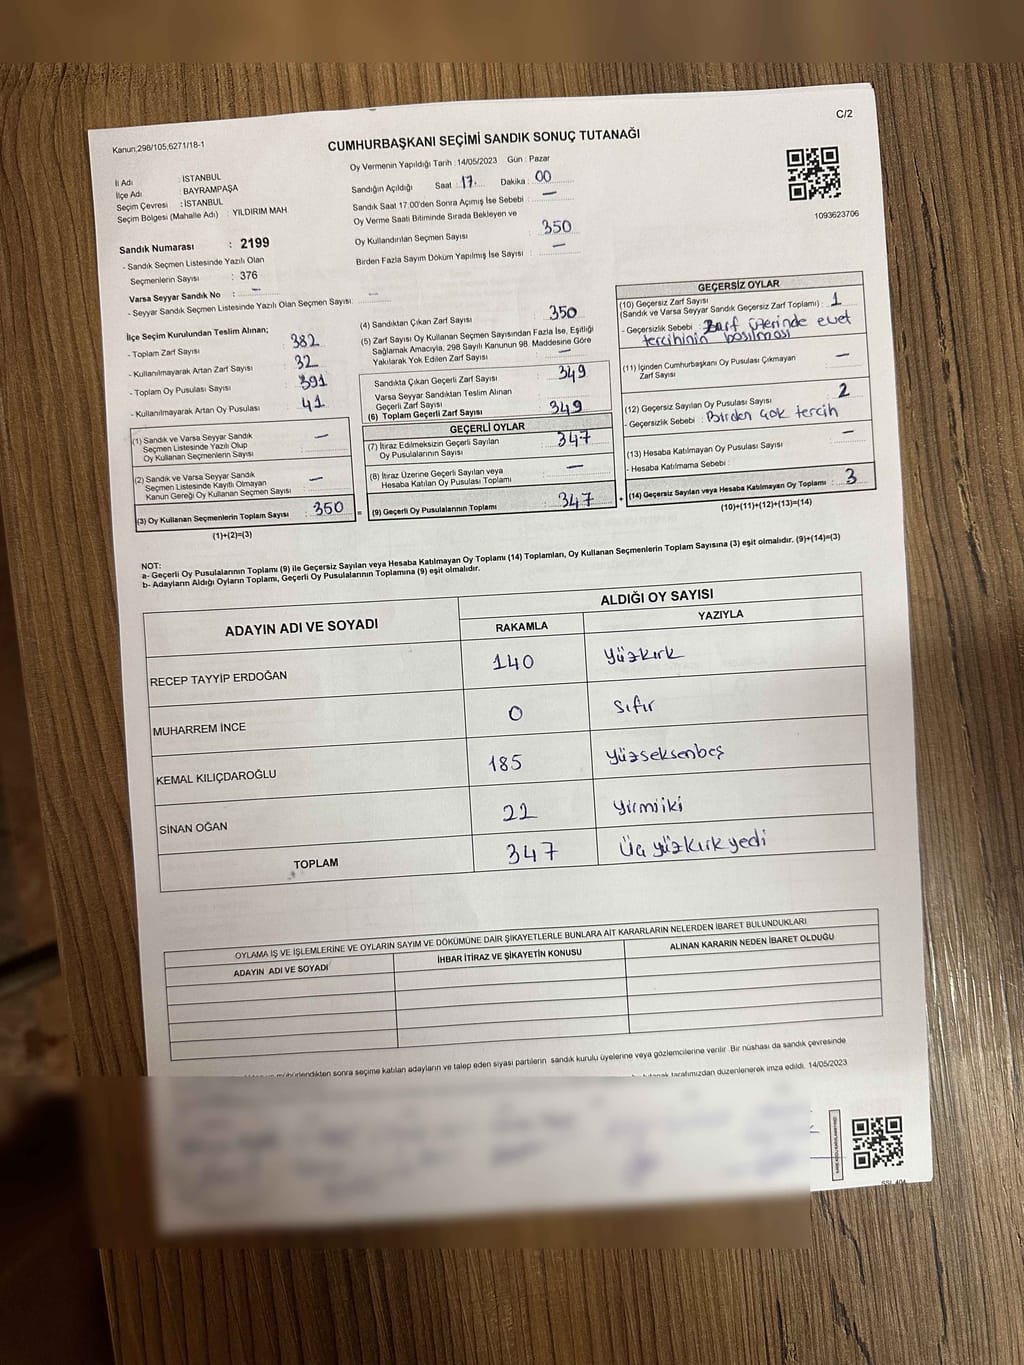 C/2
Kanun,298/105,6271/18-1
CUMHURBAŞKANI SEÇİMİ SANDIK SONUÇ TUTANAĞI
İl Adı : İSTANBUL
İlçe Adı : BAYRAMPAŞA
Seçim Çevresi : İSTANBUL
Seçim Bölgesi (Mahalle Adı) : YILDIRIM MAH
Sandık Numarası : 2199
- Sandık Seçmen Listesinde Yazılı Olan
Seçmenlerin Sayısı : 376
Varsa Seyyar Sandık No : —
- Seyyar Sandık Seçmen Listesinde Yazılı Olan Seçmen Sayısı: —
Oy Vermenin Yapıldığı Tarih : 14/05/2023 Gün : Pazar
Sandığın Açıldığı Saat : 17 Dakika : 00
Sandık Saat 17.00'den Sonra Açımış İse Sebebi : —
Oy Verme Saati Bitiminde Sırada Bekleyen ve
Oy Kullandırılan Seçmen Sayısı : 350
Birden Fazla Sayım Döküm Yapılmış İse Sayısı : —
1093623706
İlçe Seçim Kurulundan Teslim Alınan;
- Toplam Zarf Sayısı : 382
- Kullanılmayarak Artan Zarf Sayısı : 32
- Toplam Oy Pusulası Sayısı : 391
- Kullanılmayarak Artan Oy Pusulası : 41
(1) Sandık ve Varsa Seyyar Sandık
Seçmen Listesinde Yazılı Olup
Oy Kullanan Seçmenlerin Sayısı : —
(2) Sandık ve Varsa Seyyar Sandık
Seçmen Listesinde Kayıtlı Olmayan
Kanun Gereği Oy Kullanan Seçmen Sayısı : —
(3) Oy Kullanan Seçmenlerin Toplam Sayısı : 350
(1)+(2)=(3)
=
(4) Sandıktan Çıkan Zarf Sayısı : 350
(5) Zarf Sayısı Oy Kullanan Seçmen Sayısından Fazla İse, Eşitliği
Sağlamak Amacıyla, 298 Sayılı Kanunun 98. Maddesine Göre
Yakılarak Yok Edilen Zarf Sayısı : —
Sandıkta Çıkan Geçerli Zarf Sayısı : 349
Varsa Seyyar Sandıktan Teslim Alınan
Geçerli Zarf Sayısı
(6) Toplam Geçerli Zarf Sayısı : 349
GEÇERLİ OYLAR
(7) İtiraz Edilmeksizin Geçerli Sayılan
Oy Pusulalarının Sayısı : 347
(8) İtiraz Üzerine Geçerli Sayılan veya
Hesaba Katılan Oy Pusulası Toplamı : —
(9) Geçerli Oy Pusulalarının Toplamı : 347
+
GEÇERSİZ OYLAR
(10) Geçersiz Zarf Sayısı
(Sandık ve Varsa Seyyar Sandık Geçersiz Zarf Toplamı) : 1
- Geçersizlik Sebebi : Zarf üzerinde evet
tercihinin basılması
(11) İçinden Cumhurbaşkanı Oy Pusulası Çıkmayan
Zarf Sayısı : —
(12) Geçersiz Sayılan Oy Pusulası Sayısı : 2
- Geçersizlik Sebebi : Birden çok tercih
(13) Hesaba Katılmayan Oy Pusulası Sayısı : —
- Hesaba Katılmama Sebebi :
(14) Geçersiz Sayılan veya Hesaba Katılmayan Oy Toplamı : 3
(10)+(11)+(12)+(13)=(14)
NOT:
a- Geçerli Oy Pusulalarının Toplamı (9) ile Geçersiz Sayılan veya Hesaba Katılmayan Oy Toplamı (14) Toplamları, Oy Kullanan Seçmenlerin Toplam Sayısına (3) eşit olmalıdır. (9)+(14)=(3)
b- Adayların Aldığı Oyların Toplamı, Geçerli Oy Pusulalarının Toplamına (9) eşit olmalıdır.
ADAYIN ADI VE SOYADI ALDIĞI OY SAYISI
RAKAMLA YAZIYLA
RECEP TAYYİP ERDOĞAN 140 Yüzkırk
MUHARREM İNCE 0 Sıfır
KEMAL KILIÇDAROĞLU 185 Yüzseksenbeş
SİNAN OĞAN 22 Yirmiiki
TOPLAM 347 Üçyüzkırkyedi
OYLAMA İŞ VE İŞLEMLERİNE VE OYLARIN SAYIM VE DÖKÜMÜNE DAİR ŞİKAYETLERLE BUNLARA AİT KARARLARIN NELERDEN İBARET BULUNDUKLARI
ADAYIN ADI VE SOYADI İHBAR İTİRAZ VE ŞİKAYETİN KONUSU ALINAN KARARIN NEDEN İBARET OLDUĞU
mühürlendikten sonra seçime katılan adayların ve talep eden siyasi partilerin sandık kurulu üyelerine veya gözlemcilerine verilir. Bir nüshası da sandık çevresinde
tutanak tarafımızdan düzenlenerek imza edildi. 14/05/2023